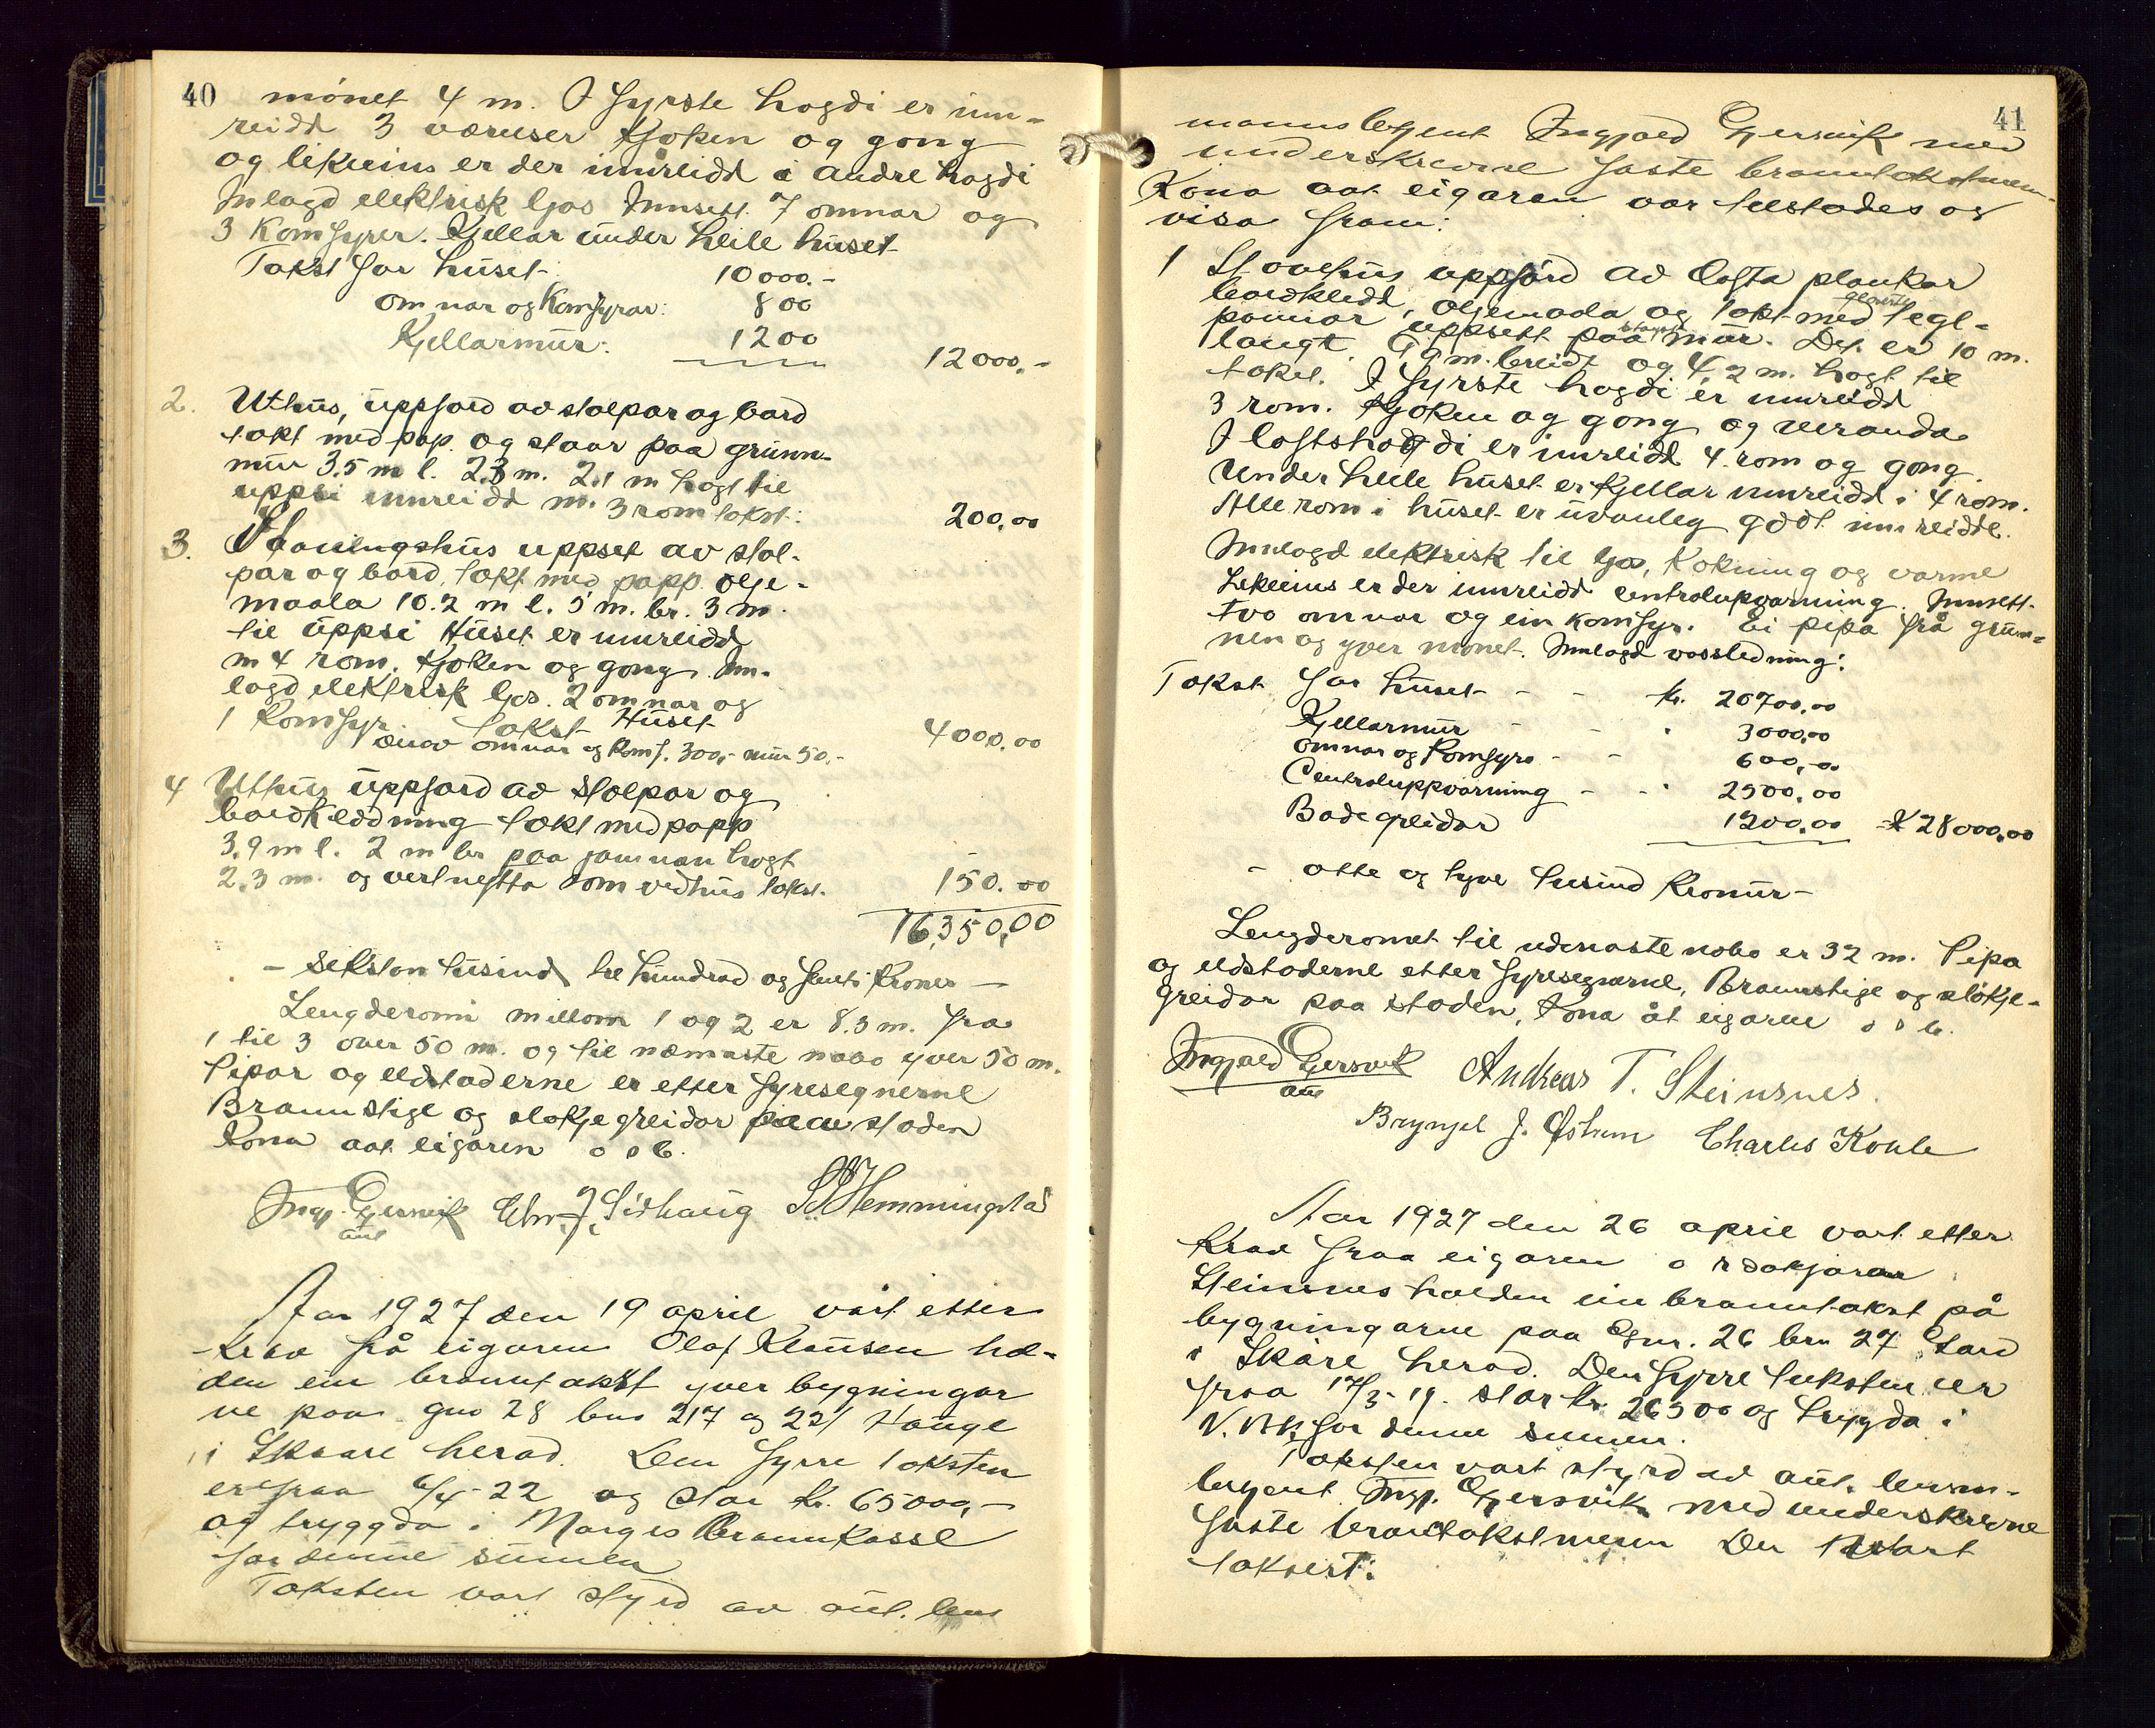 40
mønet 4 m. I fyrste høgdi er inn-
reidd 3 værelser Kjøken og gong
og likeeins er der innreidd i andre høgdi
Inlagd elektrisk ljos Innsett 7 omnar og
3 Komfyrer. Kjellar under heile huset
Takst for huset: 10000.-
omnar og Komfyrar: 800
Kjellarmur: 1200 12000.-
2. Uthus, uppførd av stolpar og bord
tekt med pap. og staar paa grunn-
mur 3.5 m l. 2.3 m. 2.1 m høgt til
uppsi innreidd m. 3 rom takst: 200,00
3. Vaaningshus uppset av stol-
par og bord, tekt med papp olje-
maala 10.2 m l. 5 m. br. 3 m.
til uppsi Huset er innreidd
m 4 rom. Kjøken og gong inn-
lagd elektrisk ljos. 2 omnar og
1 Komfyr. Takst Huset 4000.00
derav omnar og Komf. 300,- mur 50.-
4 Uthus uppførd av stolpar og
bordkleddning tekt med papp
3.9 m l. 2 m br paa jamnan høgt
2.3 m. og vert nytta som vedhus takst. 150.00
16,350,00
- seksten tusind tre hundrad og femti Kroner -
Lengderomi millom 1 og 2 er 8.3 m. fra
1 til 3 over 50 m. og til næmaste nabo yver 50 m.
Pipar og eldstaderne er etter fyresegnerne
Brannstige og sløkjegreidor paa staden
Kona aat eigaren o s b.
Ingj. Gjersvik Chr. J. Sørhaug S. Hemmingstad
aut
Aar 1927 den 19 april vart etter
krav frå eigaren Olaf Klausen hal-
den ein branntakst yver bygningar
ne paa gno 28 bno 217 og 221 Hauge
i Skaare herad. Den fyrre taksten
er fraa 6/4-22 og stor Kr. 65000,-
og tryggda i Norges Brannkasse
for denne summen
Taksten vart styrd av aut. lens
41
mannsbetjent Ingjald Gjersvik med
underskrevne faste branntakstmenn.
Kona aat eigaren var tilstades og
visa fram:
1 Stovehus uppførd av lofta plankar
bordkledd, oljemaala og tekt med glaserte tegl-
pannor uppsett paa støypt mur. Det er 10 m.
langt. 9.9 m. breidt og 4.2 m. høgt til
taket. I fyrste høgdi er innreidd
3 rom. Kjøken og gong og veranda
I loftshøgdi er innreidd 4 rom og gong
Under heile huset er Kjellar innreidd i 4 rom.
Alle rom i huset er uvanleg godt innreidde.
Innlagd elektrisk til ljos, Kokning og varme
Likeeins er der innreidd centralupvarming. Innsett
tvo omnar og ein komfyr. Ei pipa frå grun-
nen og yver mønet. Innlagd vassledning:
Takst for huset - - kr. 20700,00
Kjellarmur - " 3000,00
omnar og Komfyra - - 600,00
Centraluppvarming - - " 2500,00
Badegreidor 1200,00 K 28000,00
- otte og tyve tusind Kronur -
Lengderomet til næmaste nabo er 32 m. Pipa
og eldstaderne etter fyresegnarne, Brannstige og sløkje-
greidor paa staden, Kona åt eigarne o s b.
Ingjald Gjersvik Andreas T. Steinsnes.
aut
Bryngel J. Østrem Charles Kohle
Aar 1927 den 26 april vart etter
Krav fraa eigaren
Steinsnes halden ein branntakst på
bygningarne paa Gnr. 26 brn 27 Gard
i Skåre herad. Den fyrre taksten er
fraa 17/5-19. stor kr. 26500 og trygda i
N. Bk for denne summen.
Taksten vart styrd av aut. lensm-
betjent Ingj. Gjersvik med underskrevne
faste branntakstmenn Der vart
taksert: